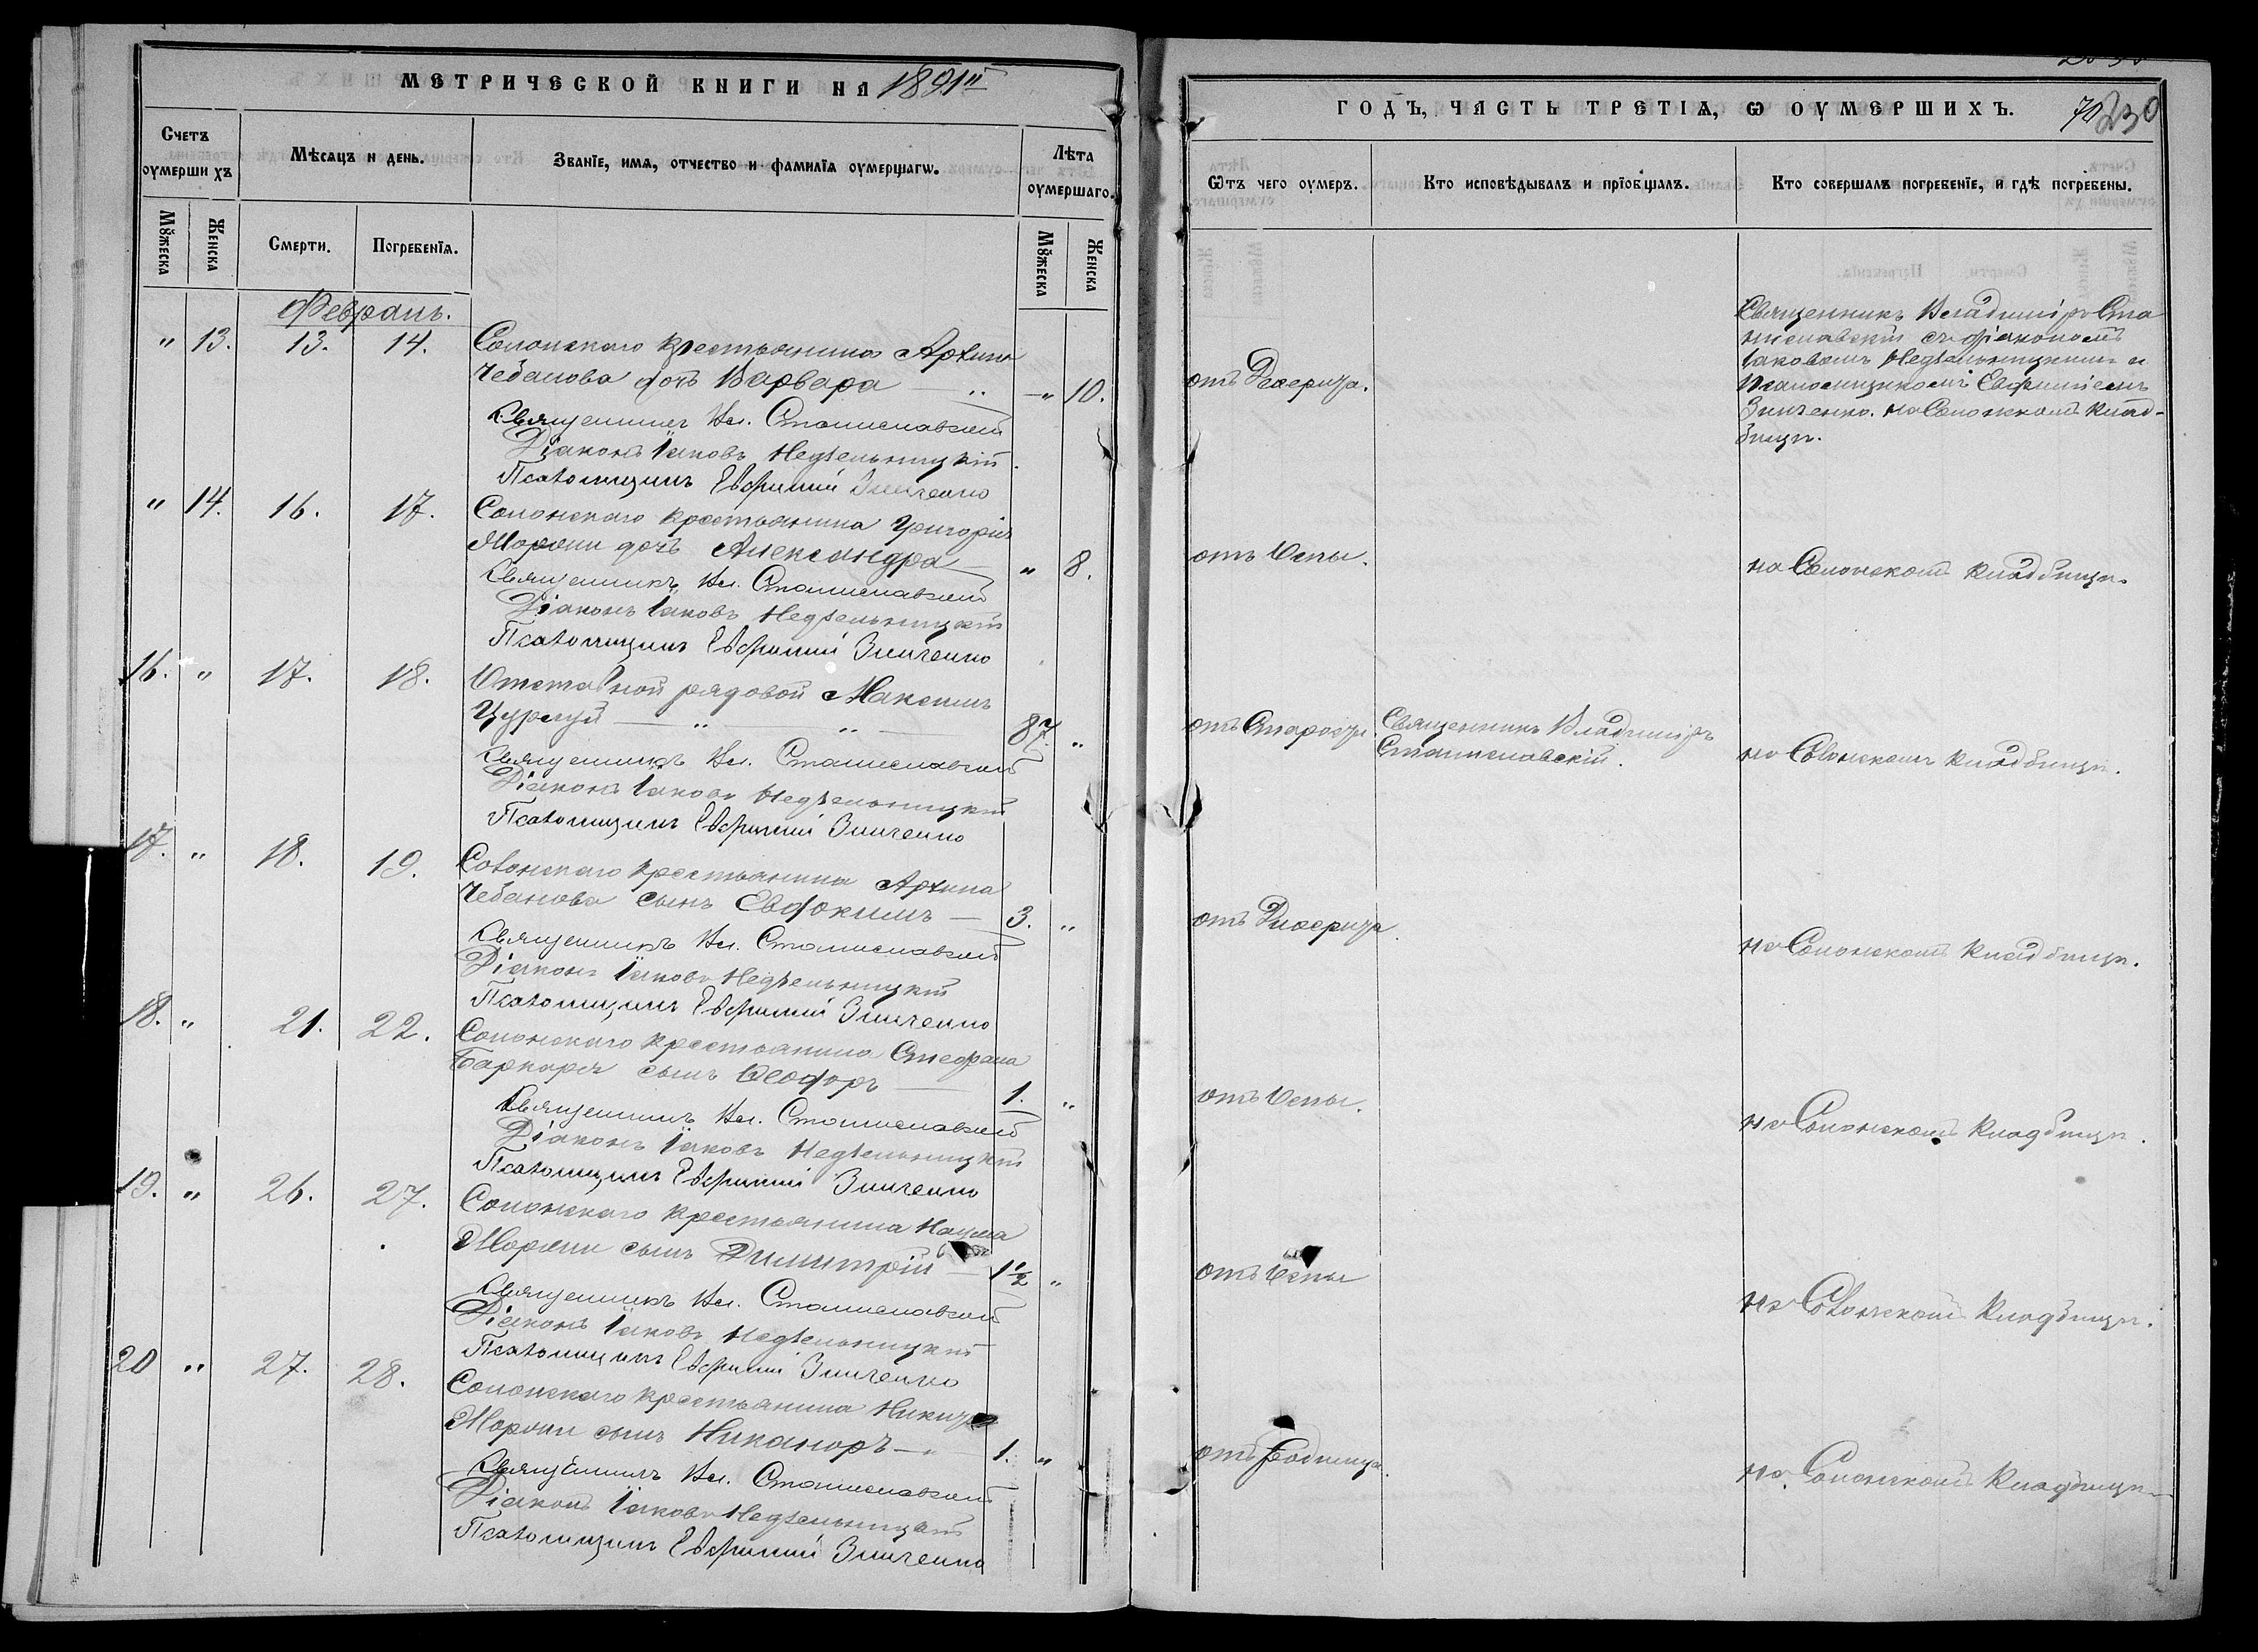 МЕТРИЧЕСКОЙ КНИГИ НА 1891й
Счетъ оумершихъ
Мѣсяцъ и день.
Званіе, имя, отчество и фамилія оумершагѡ.
Лѣта оумершаго.
Мꙋжеска
Женска
Смерти.
Погребенія.
Мꙋжеска
Женска
Февраль.
" 13. 13. 14. Солонскаго крестьянина Архипа
Чебанова дочь Варвара — " — " 10.
Священникъ Вл. Станиславскій
Діаконъ Іаковъ Недѣльницкій
Псаломщикъ Евфимій Зинченко
" 14. 16. 17. Солонскаго крестьянина Григорія
дочь Александра — " 8.
Священникъ Вл. Станиславскій
Діаконъ Іаковъ Недѣльницкій
Псаломщикъ Евфимій Зинченко
16. " 17. 18. Отставной рядовой Максимъ
— " — " — 87. "
Священникъ Вл. Станиславскій
Діаконъ Іаковъ Недѣльницкій
Псаломщикъ Евфимій Зинченко
17. " 18. 19. Солонскаго крестьянина Архипа
Чебанова сынъ Евдокимъ — 3. "
Священникъ Вл. Станиславскій
Діаконъ Іаковъ Недѣльницкій
Псаломщикъ Евфимій Зинченко
18. " 21. 22. Солонскаго крестьянина Стефана
Баркаря сынъ Ѳеодоръ — 1. "
Священникъ Вл. Станиславскій
Діаконъ Іаковъ Недѣльницкій
Псаломщикъ Евфимій Зинченко
19. " 26. 27. Солонскаго крестьянина Наума
сынъ Димитрій — 1½ "
Священникъ Вл. Станиславскій
Діаконъ Іаковъ Недѣльницкій
Псаломщикъ Евфимій Зинченко
20 " 27. 28. Солонскаго крестьянина Никиты
сынъ Никаноръ — " 1. "
Священникъ Вл. Станиславскій
Діаконъ Іаковъ Недѣльницкій
Псаломщикъ Евфимій Зинченко
ГОДЪ, ЧАСТЬ ТРЕТІѦ, Ѡ ОУМЕРШИХЪ.
70
230
Ѿтъ чего оумеръ.
Кто исповѣдывалъ и пріобщалъ.
Кто совершалъ погребеніе, и гдѣ погребены.
Священникъ Владиміръ Ста
ниславскій съ діакономъ
Іаковомъ Недѣльницкимъ и
псаломщикомъ Евфиміемъ
Зинченко. на Солонскомъ клад-
бищѣ.
отъ
отъ Оспы.
на Солонскомъ кладбищѣ.
отъ Старости
Священникъ Владиміръ
Станиславскій.
на Солонскомъ кладбищѣ.
отъ
на Солонскомъ кладбищѣ.
отъ Оспы.
на Солонскомъ кладбищѣ.
отъ Оспы
на Солонскомъ кладбищѣ.
отъ
на Солонскомъ кладбищѣ